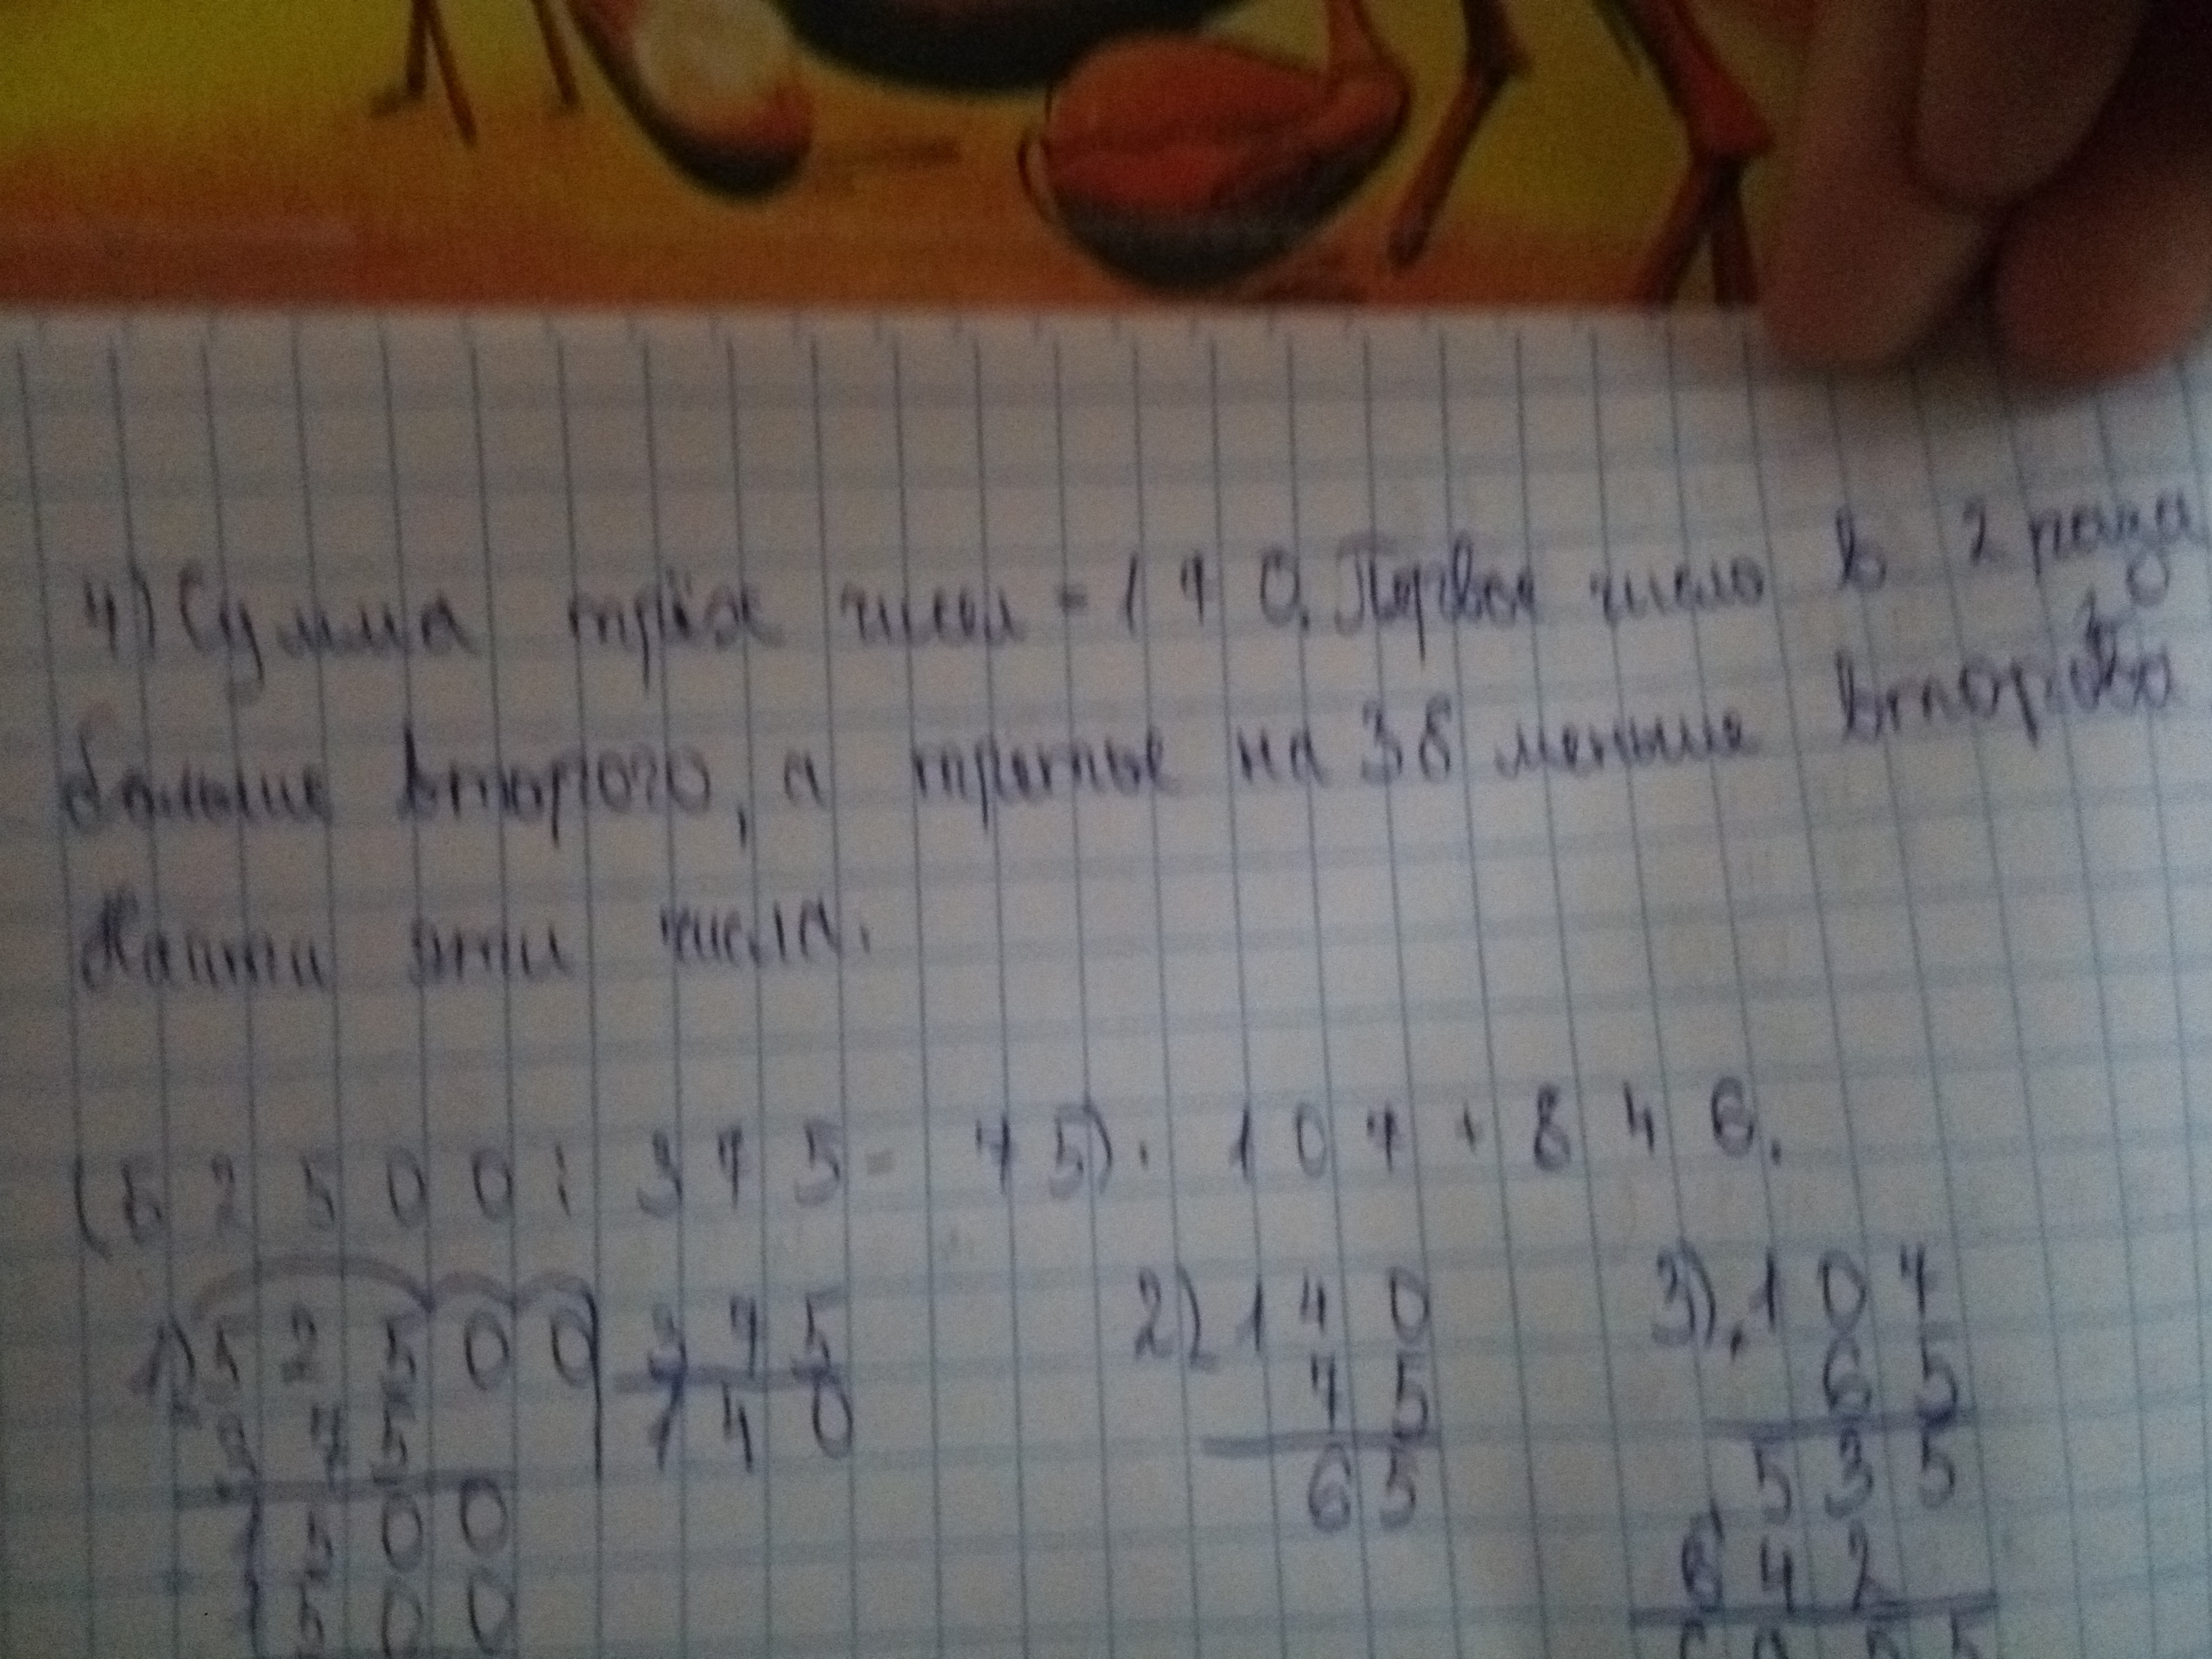 4) Сумма трёх чисел = 170. Первое число в 2 раза
больше второго, а третье на 38 меньше второго
Найти эти числа.
(52500 : 375 - 75) · 107 + 846.
1) 52500 375 2) 140 3) 107
375 140 75 65
1500 65 535
1500 642